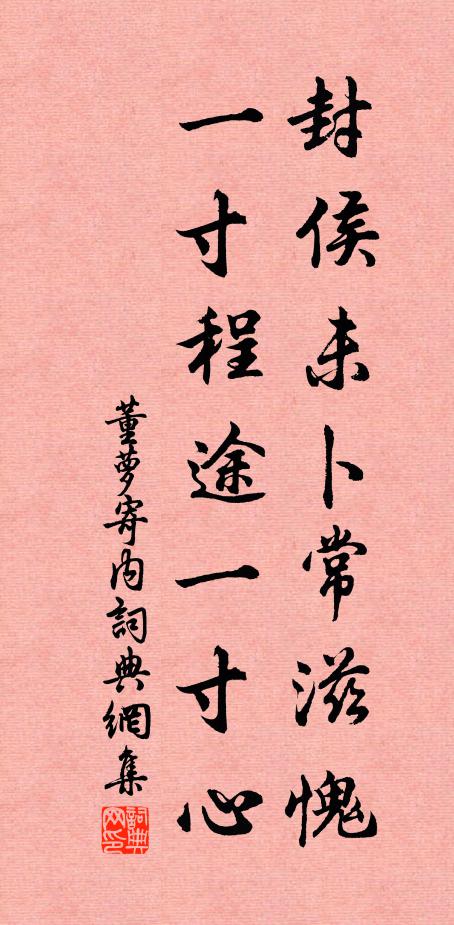 封侯未卜常滋愧
一寸程途一寸心
董萝寄内词典網集
詞典网印